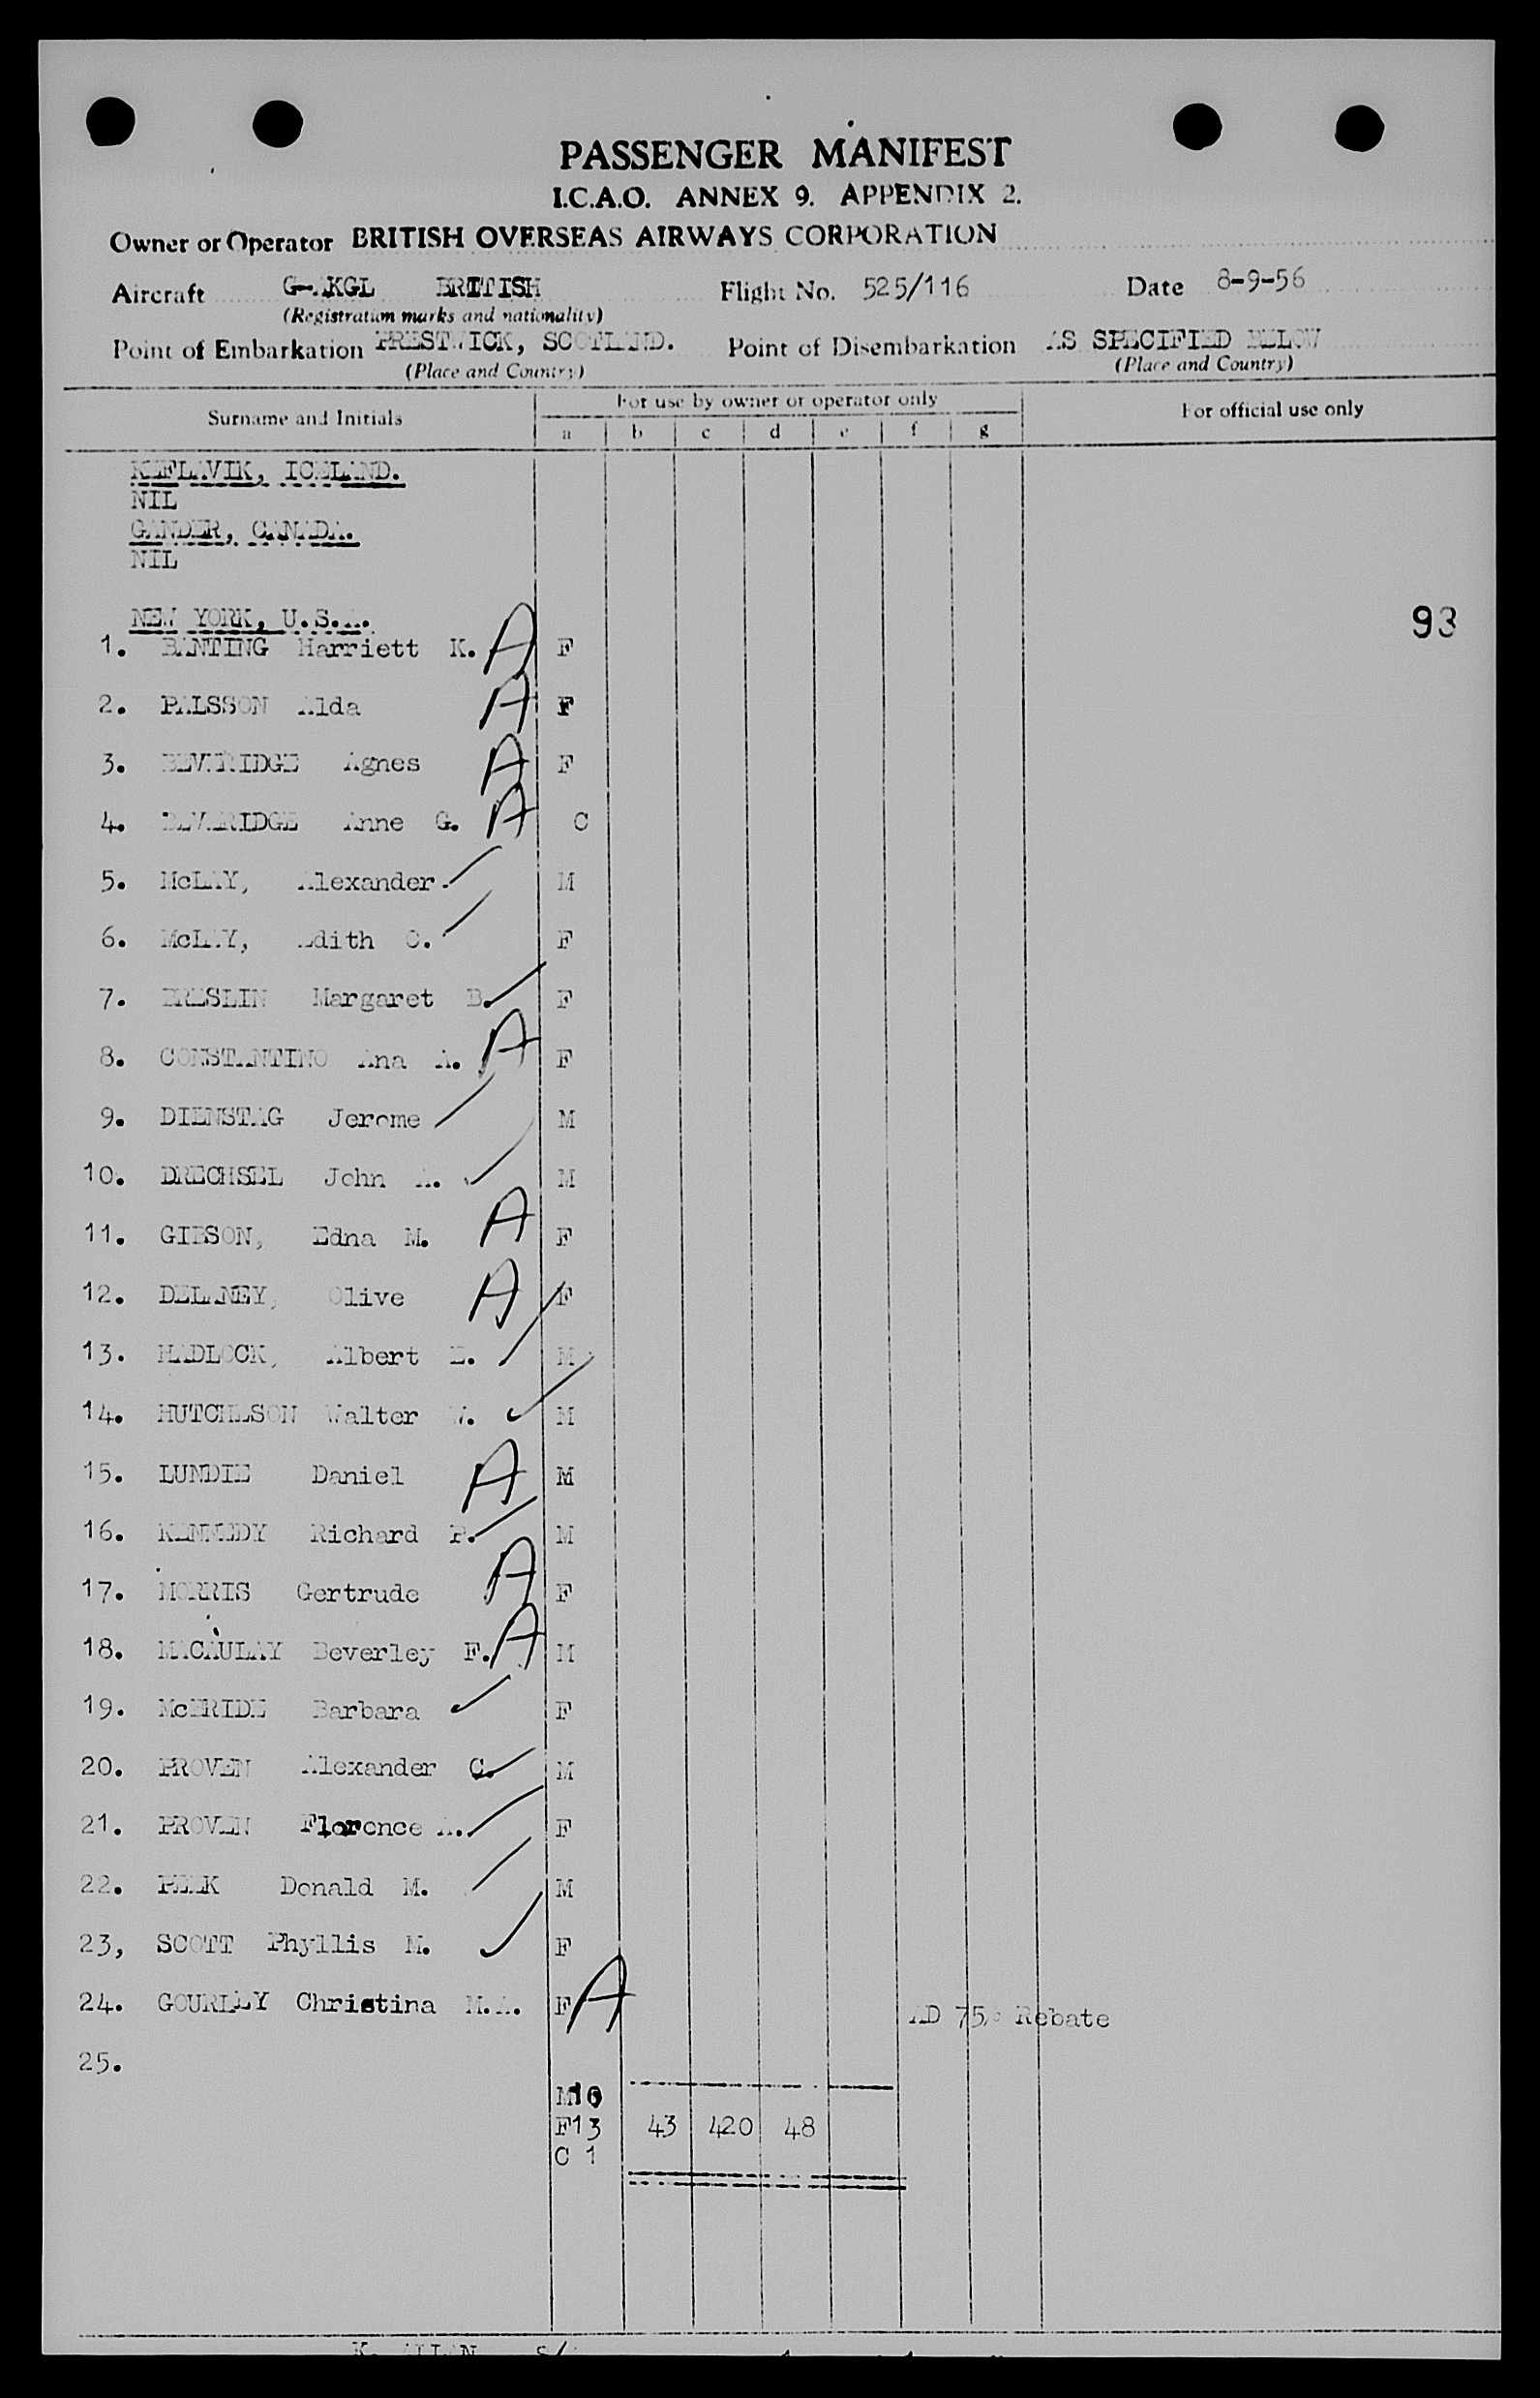 PASSENGER MANIFEST
I.C.A.O. ANNEX 9. APPENDIX 2.
Owner or Operator BRITISH OVERSEAS AIRWAYS CORPORATION
Aircraft G-AKGL BRITISH Flight No. 525/116 Date 8-9-56
(Registration marks and nationality)
Point of Embarkation PRESTWICK, SCOTLAND. Point of Disembarkation AS SPECIFIED BELOW
(Place and Country) (Place and Country)
Surname and Initials For use by owner or operator only For official use only
a b c d e f g
KEFLAVIK, ICELAND.
NIL
GANDER, CANADA.
NIL
NEW YORK, U.S.A.
93
1. BANTING Harriett K. A F
2. PALSSON Alda A F
3. BEVERIDGE Agnes A F
4. BEVERIDGE Anne G. A C
5. McLAY, Alexander M
6. McLAY, Edith C. F
7. BRESLIN Margaret B. F
8. CONSTANTINO Ana A. A F
9. DIENSTAG Jerome M
10. DRECHSEL John A. M
11. GIBSON, Edna M. A F
12. DELANEY, Olive A F
13. HADLOCK, Albert E. M
14. HUTCHESON Walter W. M
15. LUNDIE Daniel A M
16. KENNEDY Richard P. M
17. MORRIS Gertrude A F
18. MACAULAY Beverley F. A M
19. McBRIDE Barbara F
20. PROVEN Alexander C. M
21. PROVEN Florence A. F
22. PEEK Donald M. M
23, SCOTT Phyllis M. F
24. GOURLEY Christina M.A. F A AD 75% Rebate
25.
M10
F13 43 420 48
C 1
K. ALLAN